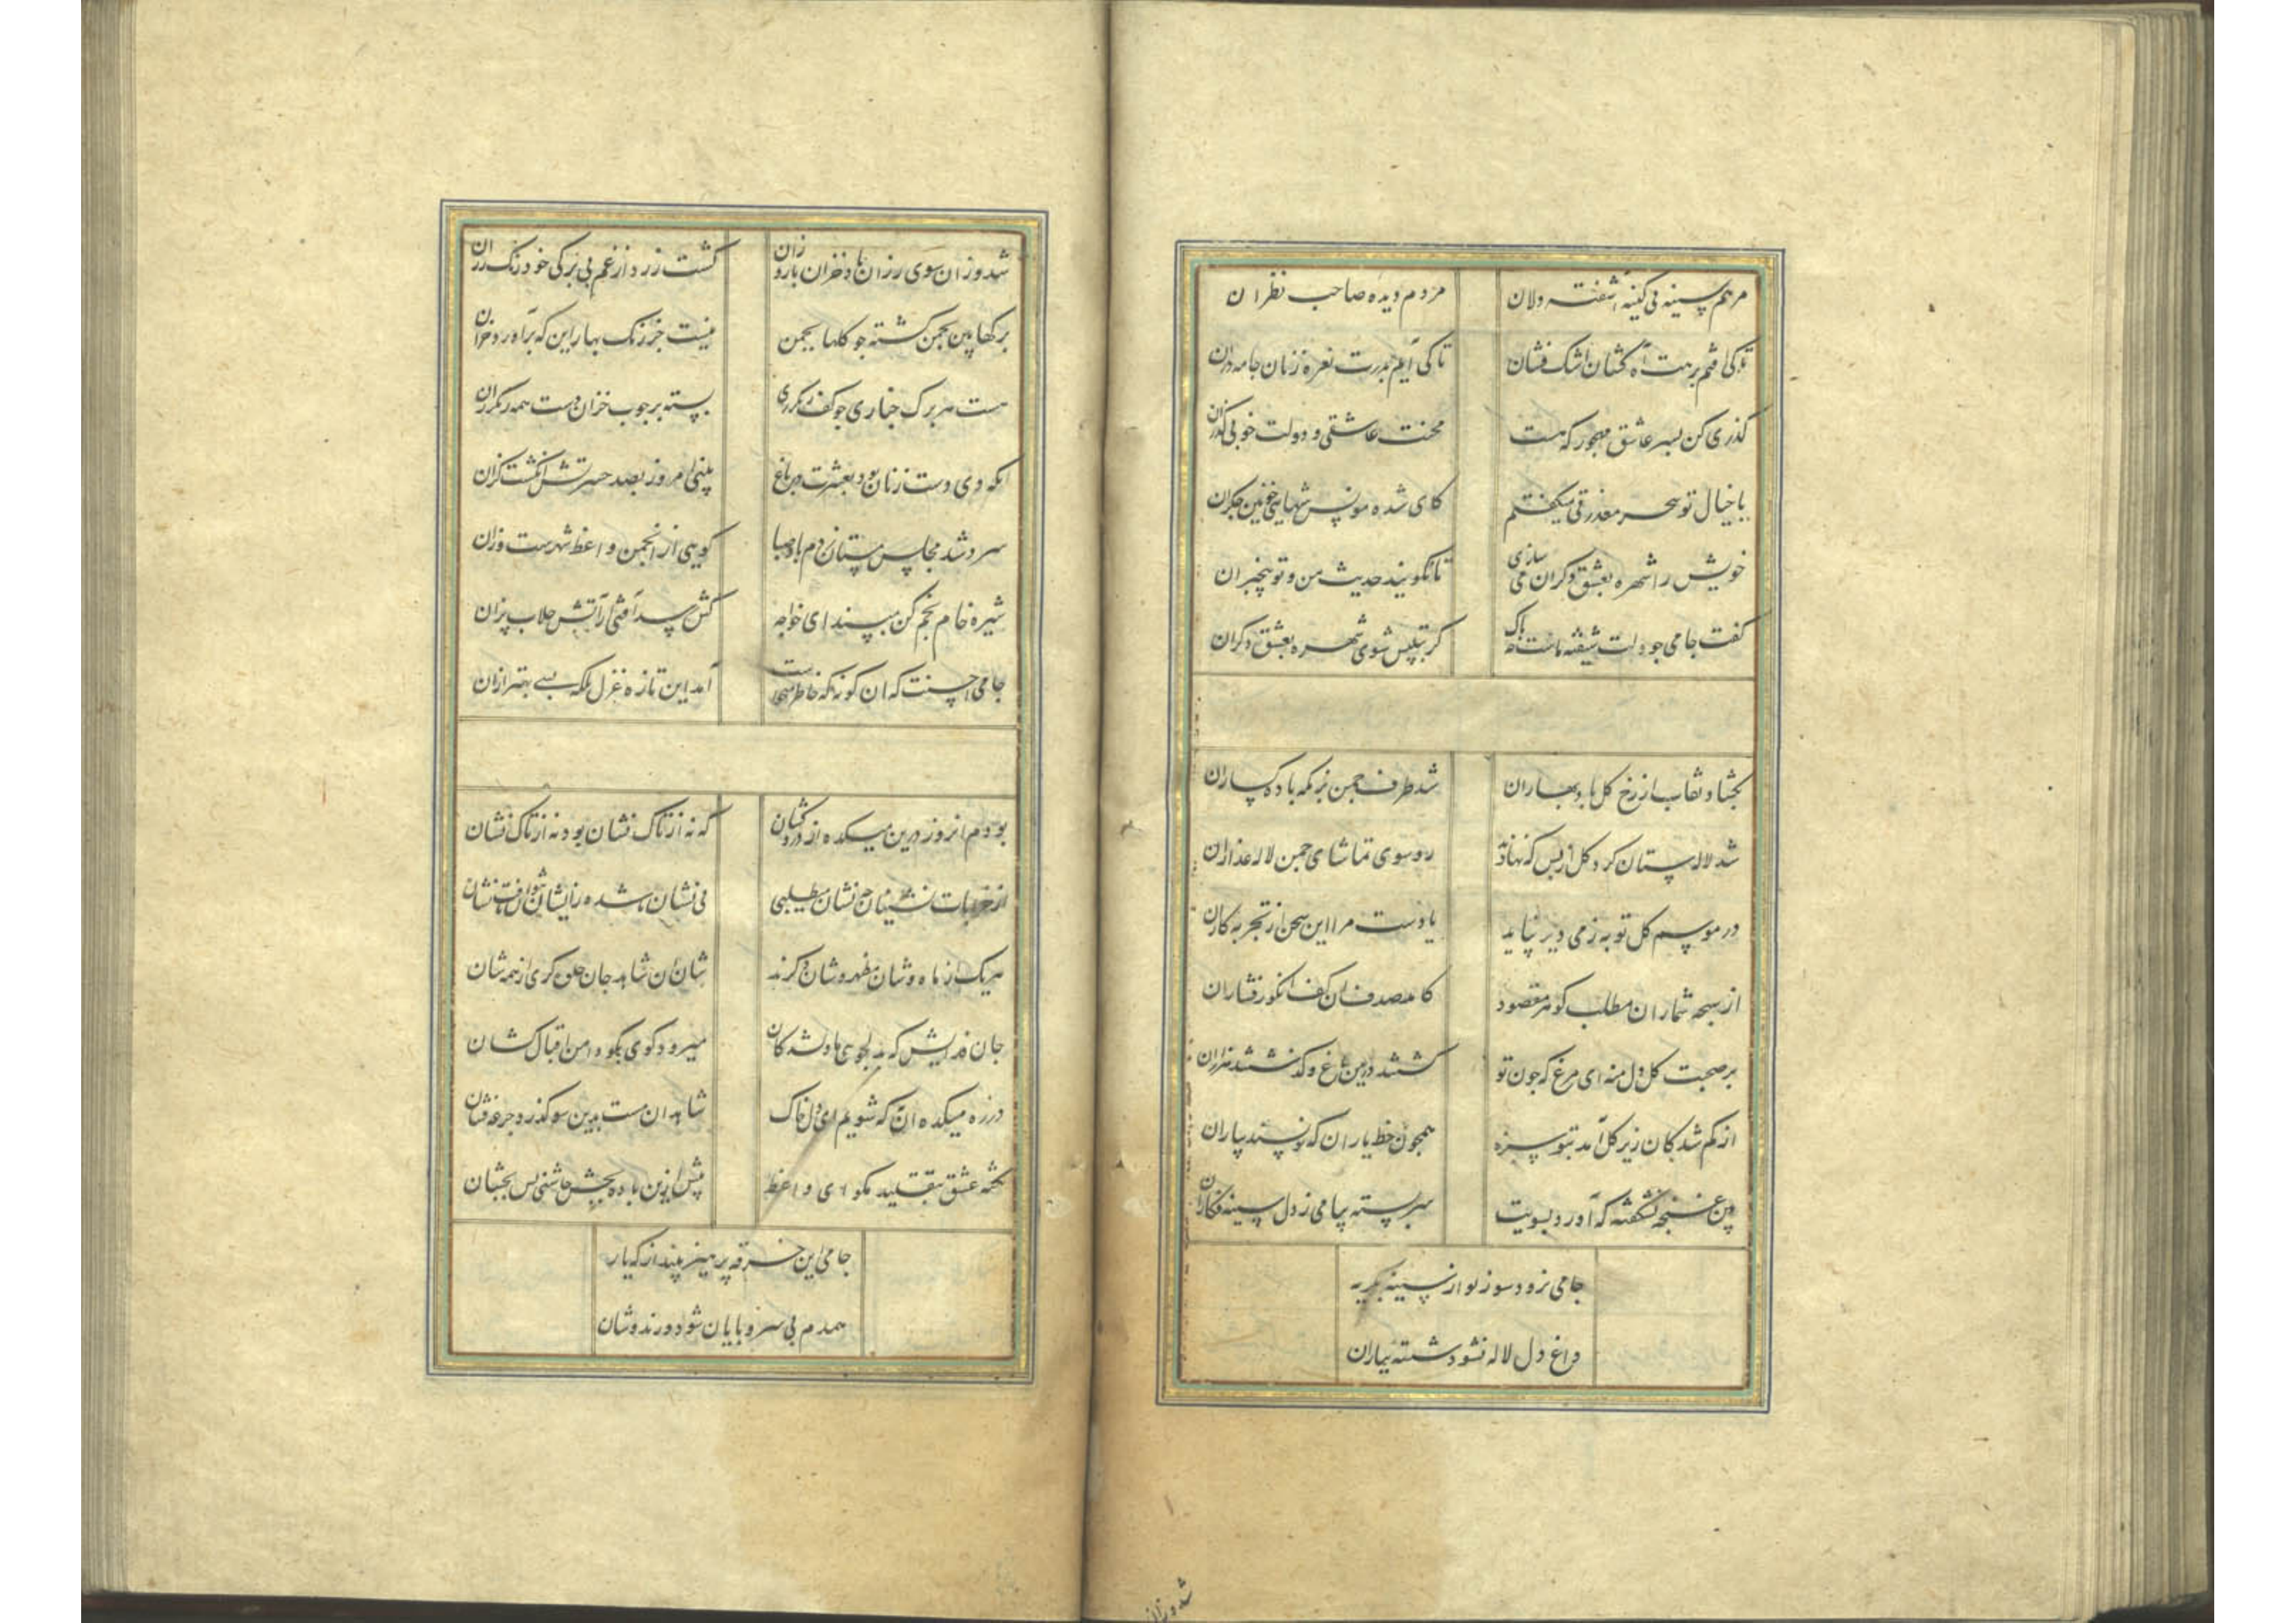 مرهم سینه بی کینه آشفته دلان مردم دیده صاحب نظران
تا کی افتم برهت آه کشان اشک فشان تا کی آیم بدرت نعره زنان جامه دران
گذری کن بسر عاشق مهجور که هست محنت عاشقی و دولت خوبی گذران
با خیال تو سحر معذرتی میگفتم کای شده مونس شبهای خونین جگران
خویش را شهره بعشق دگران می سازی تا نگویند حدیث من و تو بیخبران
گفت جامی جو دلت شیفته ماست جه باک گر بتلبیس شوی شهره بعشق دگران
بگشاد نقاب از رخ گل باد بهاران شد طرف جمن بزمگه باده گساران
شد لاله ستان گرد گل از بس که نهادند رو سوی تماشای جمن لاله عذاران
در موسم گل توبه ز می دیر نپاید یادست مرا این سخن از تجربه کاران
از سبحه شماران مطلب گوهر مقصود کامد صدف آن کف انگور فشاران
بر صحبت گل دل منه ای مرغ که جون تو گشتند درین باغ و گذشتند هزاران
از گم شدگان زیر گل آمد بتو سبزه همجون خط یاران که نویسند بیاران
وین غنجه نشکفته که آورد بسویت سر بسته پیامی ز دل سینه فگاران
جامی نرود سوز تو از سینه بگریه
داغ دل لاله نشود شسته بباران
شد وزان
شد وزان سوی رزان باد خزان بار وزان گشت زرد از غم بی برگی خود رنگ رزان
برگها بین بجمن گشته جو گلها بجمن نیست جز رنگ بهار این که برآورد خزان
هست هر برگ جناری جو کف رنگرزی بسته بر جوب خزان دست همه رنگرزان
انکه دی دست زنان بود بعشرت در باغ بینی امروز بصد حسرتش انگشت گزان
سرد شد مجلس مستان ز دم باد صبا گویی از انجمن واعظ شهرست وزان
شیره خام بخم کن مپسند ای خواجه کش رسد آفتی از آتش جلاب پزان
جامی احسنت که ان گونه که خاطر میخواست آمد این تازه غزل بلکه بسی بهتر ازان
بودم انروز درین میکده از دردکشان که نه از تاک نشان بود نه از تاک نشان
از خرابات نشینان جه نشان میطلبی بی نشان ناشده زایشان نتوان یافت نشان
هر یک از ماه وشان مظهر و شان دگرند شان آن شاهد جان جلوه گری از همه شان
جان فدایش که بدلجویی ما دلشدگان میرود کوی بکو دامن اقبال کشان
در ره میکده آن به که شویم ای دل خاک شاهد آن مست بدین سو گذرد جرعه فشان
نکته عشق بتقلید مگو ای واعظ پیش ازین باده بجش جاشنی پس بجشان
جامی این خرقه پرهیز بینداز که یار
همدم بی سر و پایان شود و رندوشان